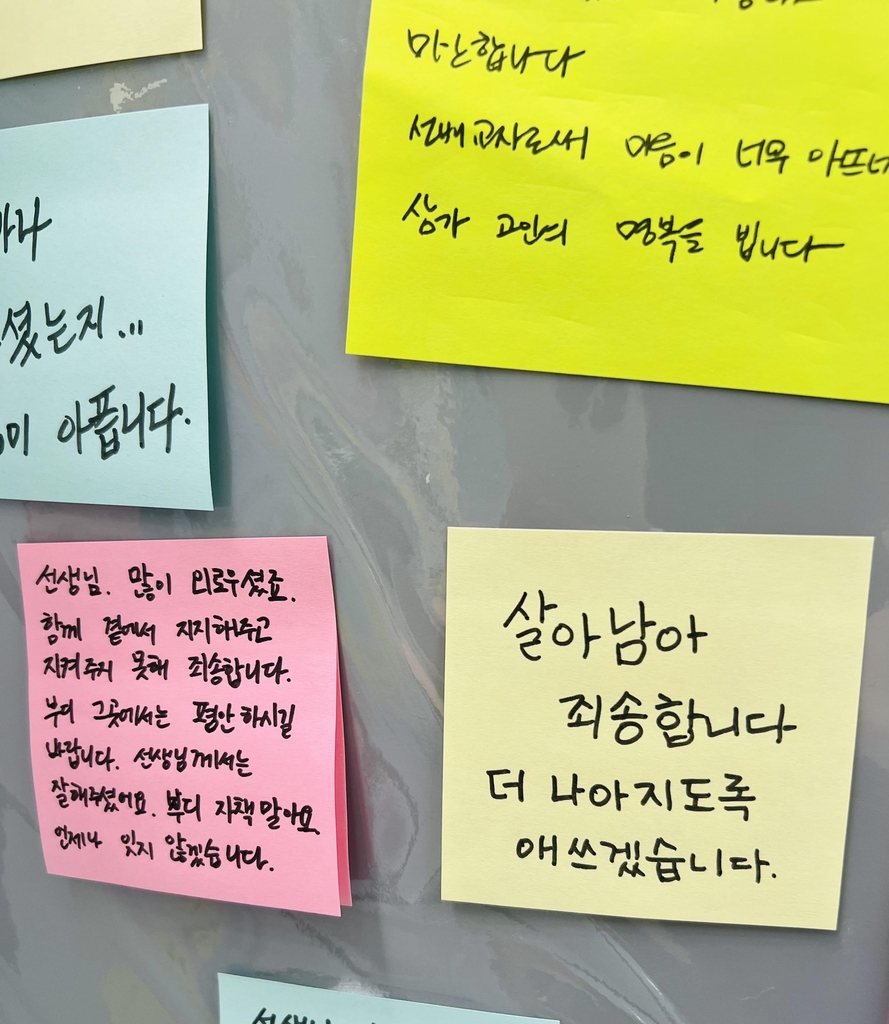 마난합니다
선배교사로써 마음이 너무 아프네
삼가 고인의 명복을 빕니다
셨는지...
아픕니다.
선생님. 많이 외로우셨죠.
함께 곁에서 지지해주고
지켜주지 못해 죄송합니다.
부디 그곳에서는 평안하시길
바랍니다. 선생님께서는
잘해주셨어요. 부디 자책말아요
언제나 잊지 않겠습니다.
살아남아
죄송합니다
더 나아지도록
애쓰겠습니다.